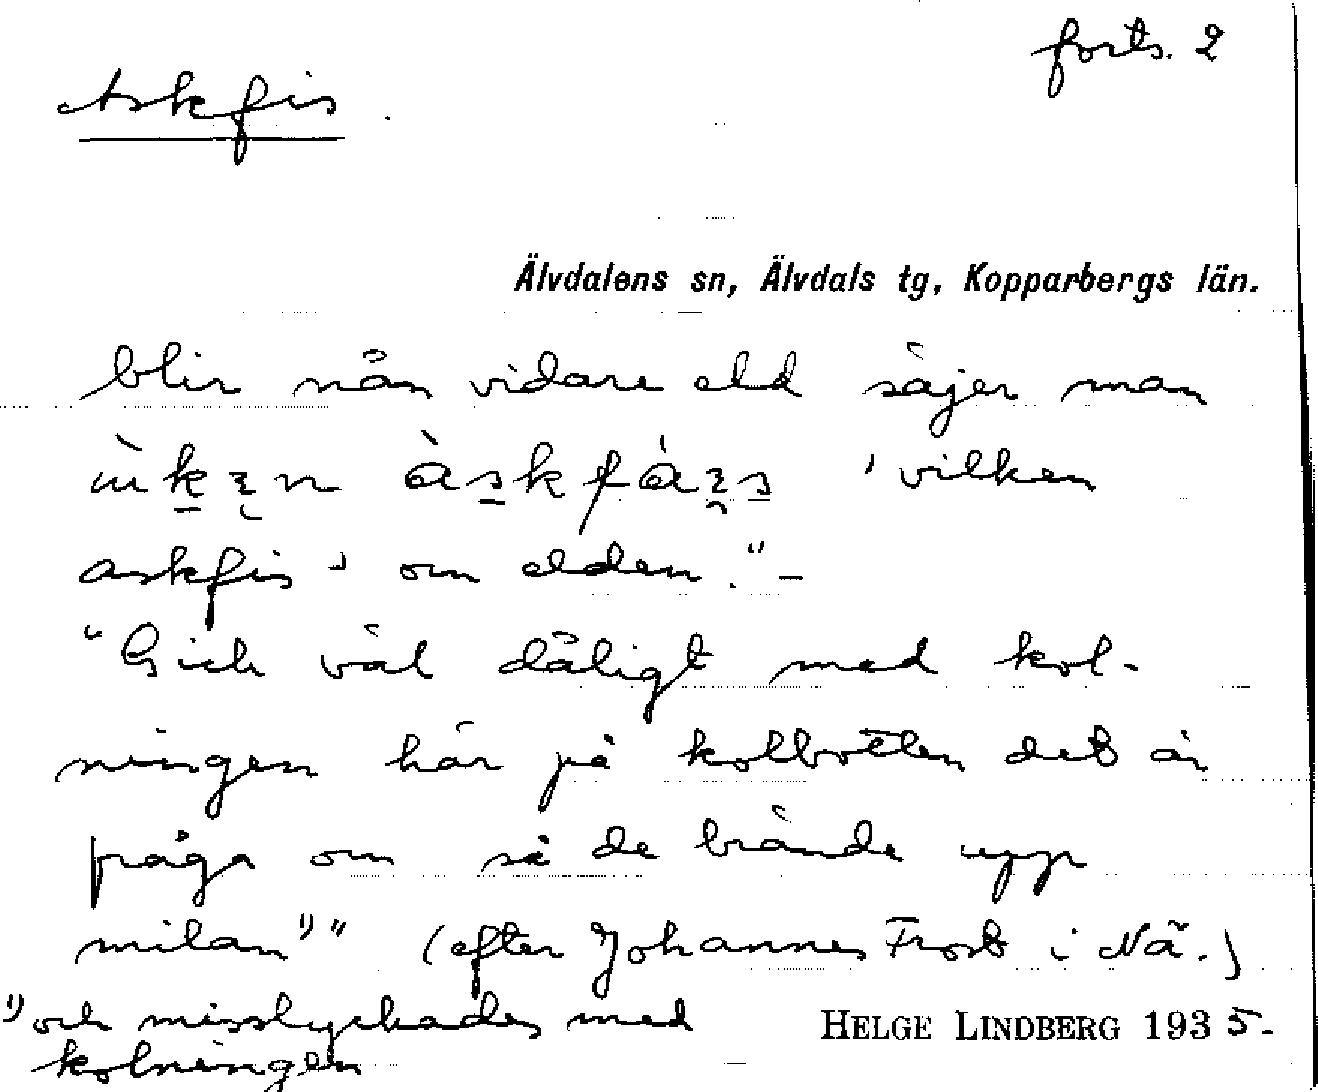 forts. 2
Askfis.
Älvdalens sn, Älvdals tg, Kopparbergs län.
blir nån vidare eld säjer man
'vilken
askfis' om elden." –
"Gick väl dåligt med kol-
ningen här på kolbotten det är
fråga om så de brände upp
milan¹)" (efter Johannes Frost i Nä.)
¹) och misslyckades med
kolningen
HELGE LINDBERG 1935-